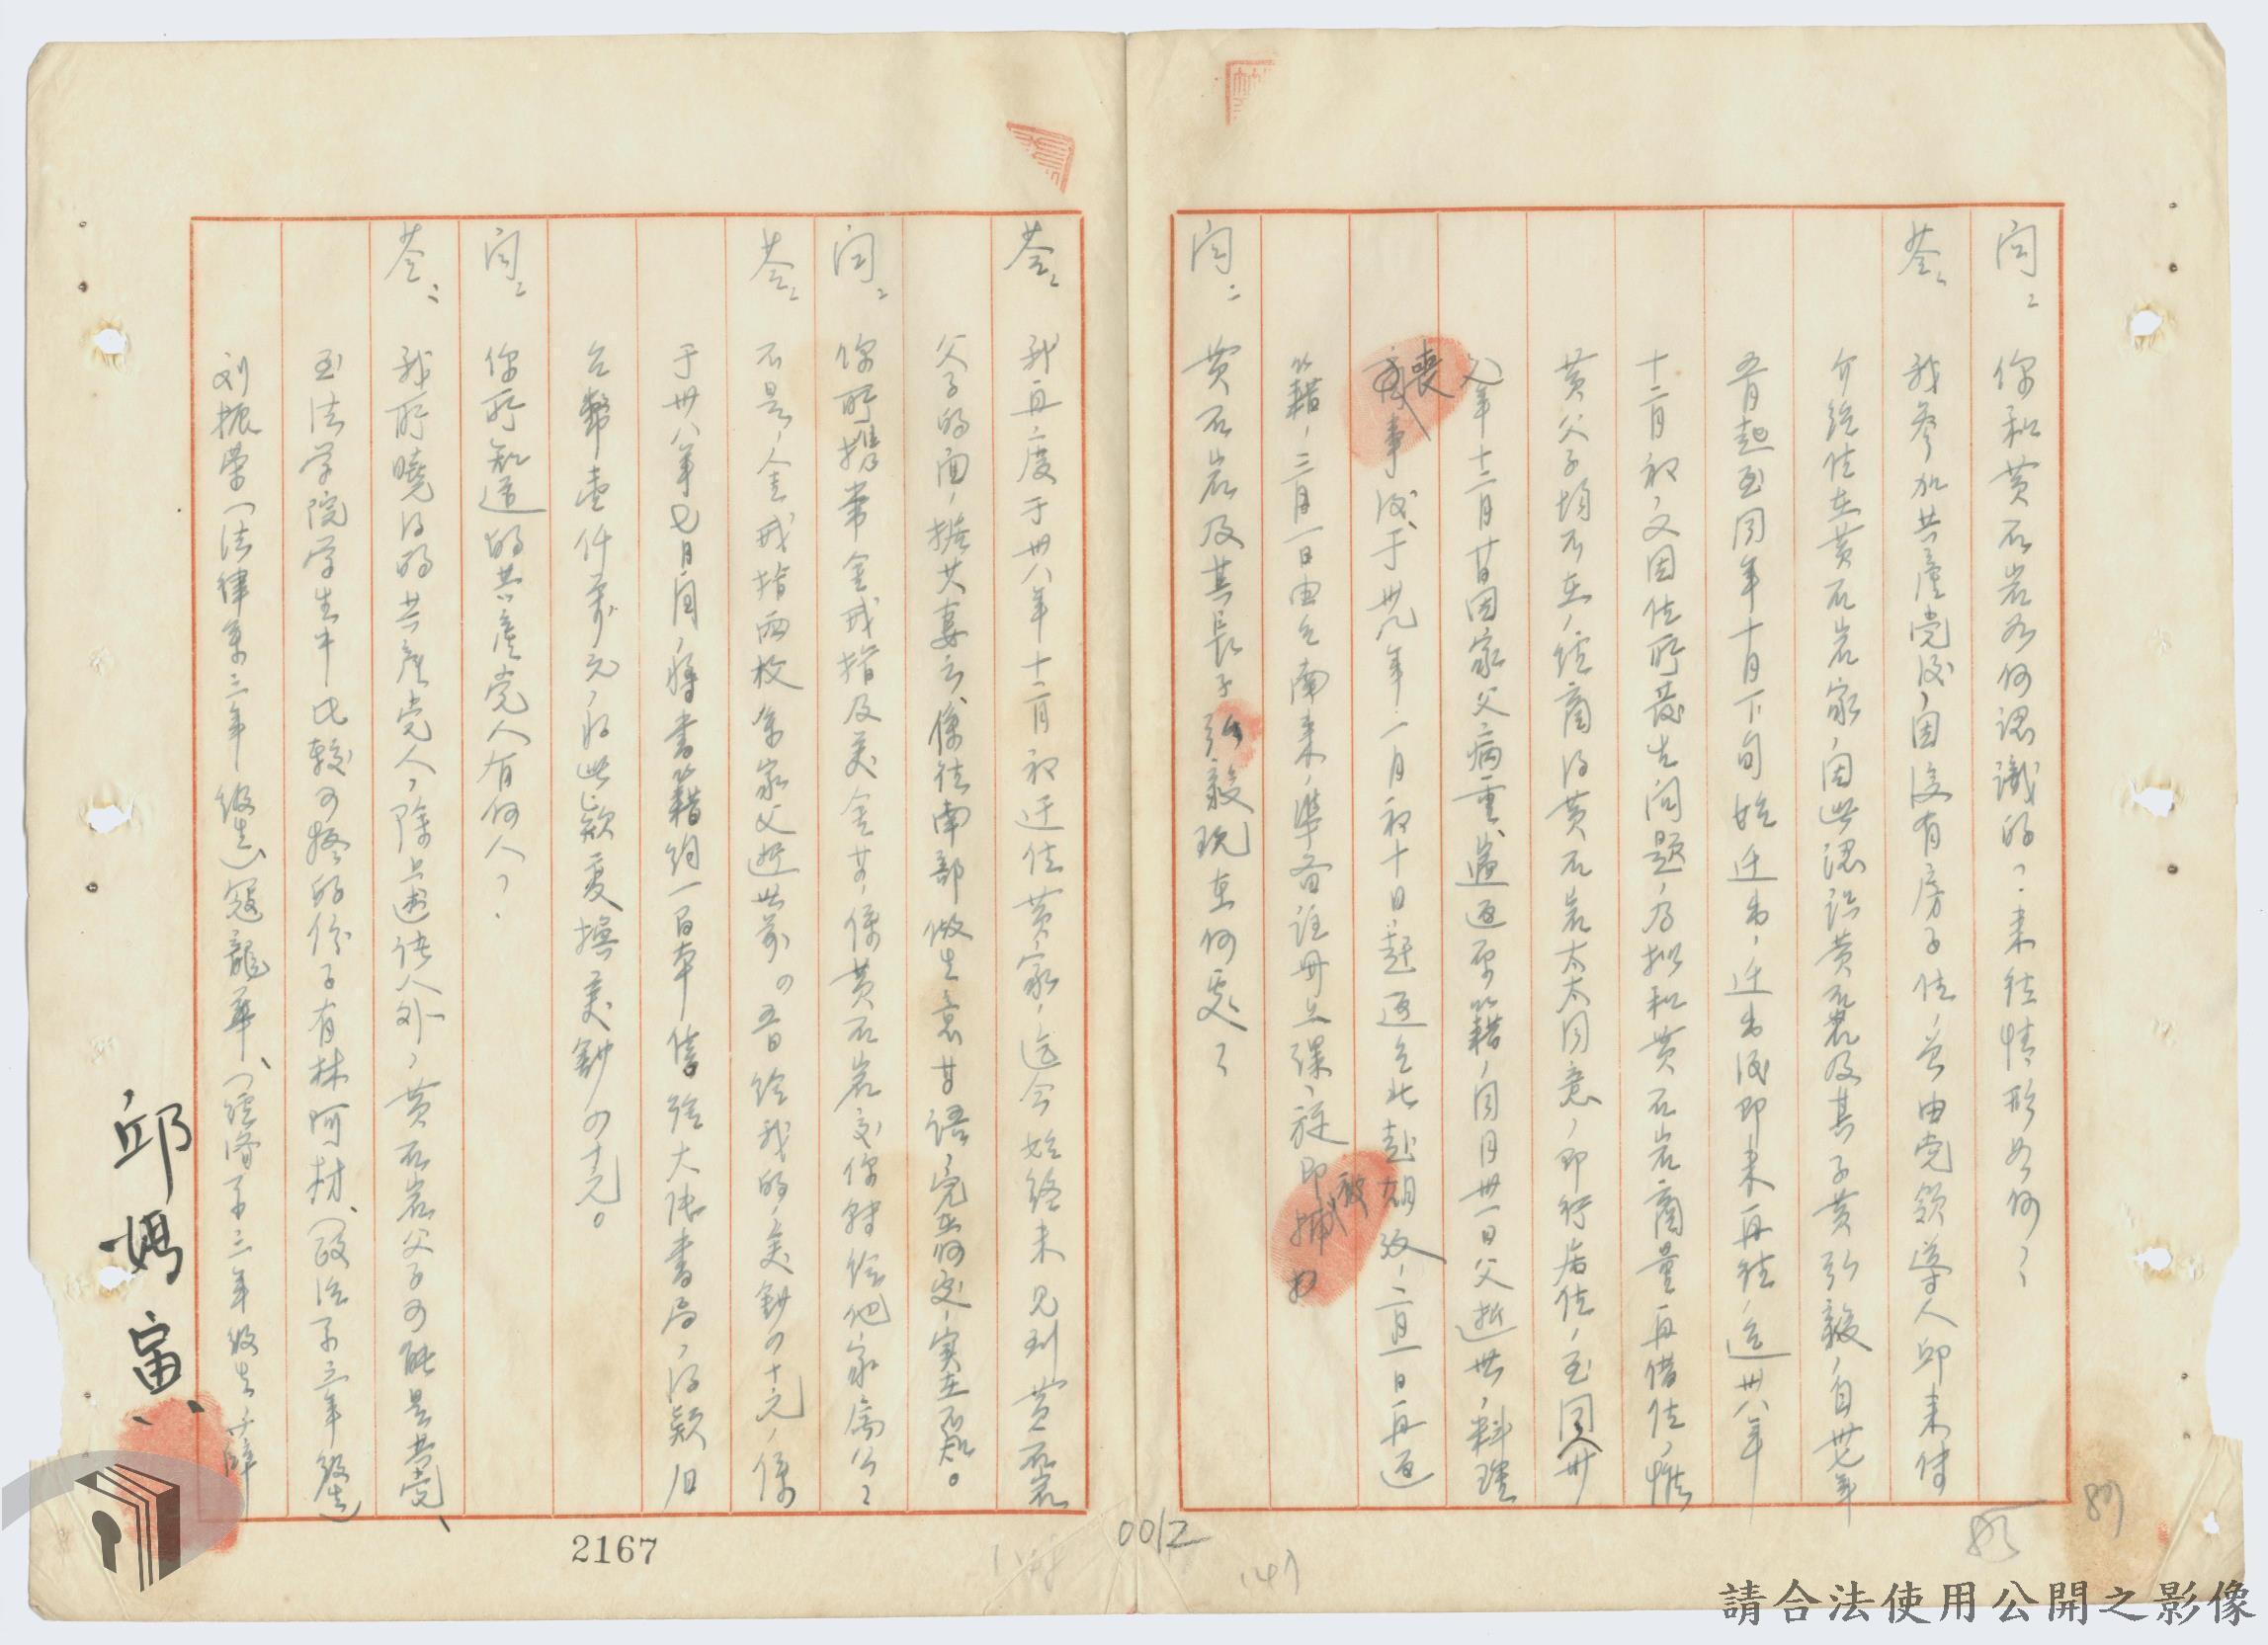 問：你和黃石岩如何認識的？来往情形如何？
答：我參加共產党後，因沒有房子住，曾由党領導人邱来傳
介紹住在黃石岩家，因此認识黃石岩及其子黃弘毅，自卅七年
五月起至同年十月下旬始迁出，迁出後即未再往，迄卅八年
十二月初，又因住所發生问題，乃擬和黃石岩商量再借住，惟
黃父子均不在，經商得黃石岩太太同意，即行居住，至同卅
八年十二月廿日因家父病重，遄返原籍，同月卅一日父逝世，料理
喪事後，于卅九年一月初十日，赶返台北赴期攷，二月一日再返
籍，三月一日由台南来，準备註册上課，旋即被捕扣
問：黃石岩及其長子弘毅現在何處？
答：我再度于卅八年十二月初迁住黃家，迄今始終未見到黃石岩
父子的面，據其妻云，係往南部做生意等語，究在何处，実在不知。
问：你所携帶金戒指及美金等，係黃石岩交你轉给他家属公？
答：不是，金戒指两枚系家父逝世前の吾日给我的，美鈔四十元，係
于卅八年七月间，將書籍约一百本售給大陆書局，得款旧
台幣壹仟萬元，将此款憂換美鈔四十元。
问：你所知道的共產党人有何人？
答：我所曉得的共產党人，除上述诸人外，黃石岩父子可能是共党、
至法学院学生中比較可疑的份子有林阿材、（政治系三年級生）
刘振榮（法律系三年级生）寇龍華、（經済系三年级生）薛
邱媽寅
2167
0012
147
85
87
請合法使用公開之影像